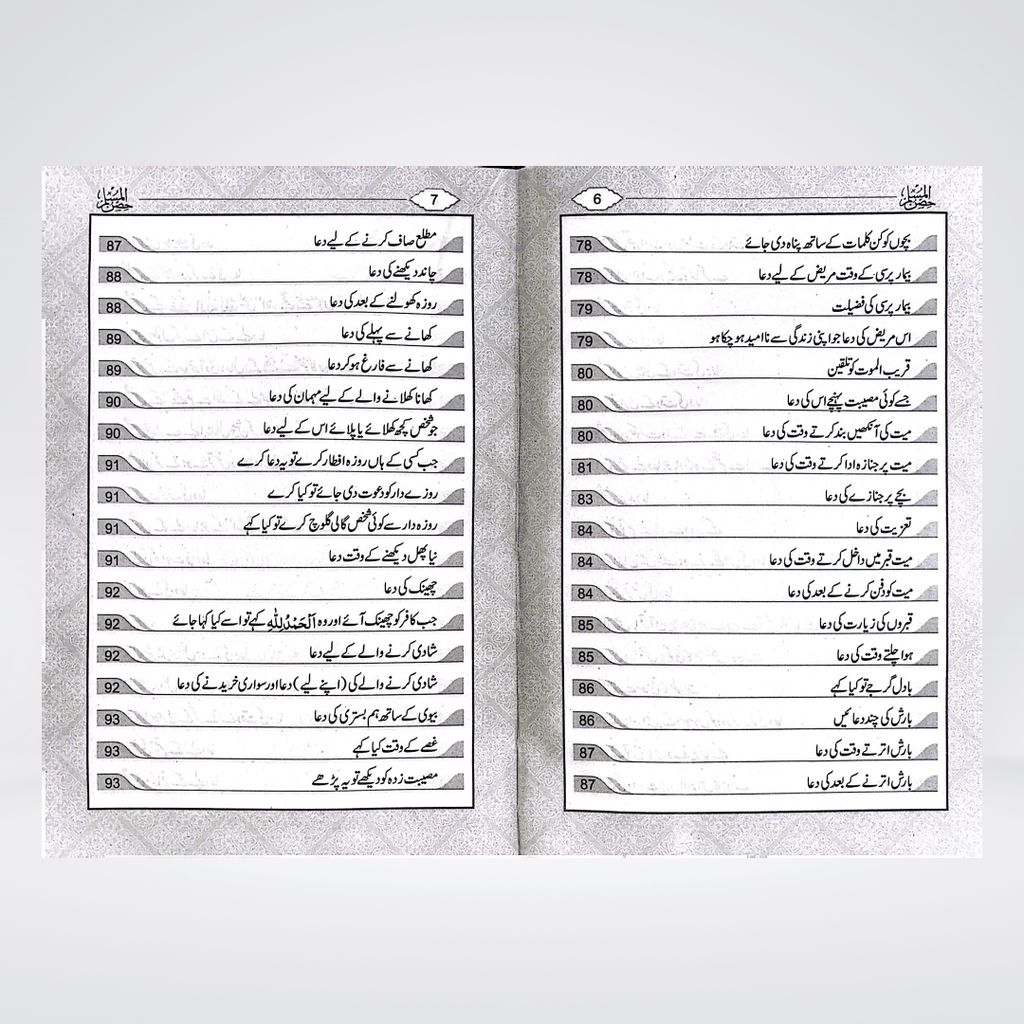 حصن المسلم
6
بچوں کو کن کلمات کے ساتھ پناہ دی جائے 78
بیمار پرسی کے وقت مریض کے لیے دعا 78
بیمار پرسی کی فضیلت 79
اس مریض کی دعا جو اپنی زندگی سے ناامید ہو چکا ہو 79
قریب الموت کو تلقین 80
جسے کوئی مصیبت پہنچے اس کی دعا 80
میت کی آنکھیں بند کرتے وقت کی دعا 80
میت پر جنازہ ادا کرتے وقت کی دعا 81
بچے پر جنازے کی دعا 83
تعزیت کی دعا 84
میت قبر میں داخل کرتے وقت کی دعا 84
میت کو دفن کرنے کے بعد کی دعا 84
قبروں کی زیارت کی دعا 85
ہوا چلتے وقت کی دعا 85
بادل گرجے تو کیا کہے 86
بارش کی چند دعائیں 86
بارش اترتے وقت کی دعا 87
بارش اترنے کے بعد کی دعا 87
7
حصن المسلم
مطلع صاف کرنے کے لیے دعا 87
چاند دیکھنے کی دعا 88
روزہ کھولنے کے بعد کی دعا 88
کھانے سے پہلے کی دعا 89
کھانے سے فارغ ہو کر دعا 89
کھانا کھلانے والے کے لیے مہمان کی دعا 90
جو شخص کچھ کھلائے یا پلائے اس کے لیے دعا 90
جب کسی کے ہاں روزہ افطار کرے تو یہ دعا کرے 91
روزے دار کو دعوت دی جائے تو کیا کرے 91
روزہ دار سے کوئی شخص گالی گلوچ کرے تو کیا کہے 91
نیا پھل دیکھنے کے وقت دعا 91
چھینک کی دعا 92
جب کافر کو چھینک آئے اور وہ اَلْحَمْدُلِلّٰهِ کہے تو اسے کیا کہا جائے 92
شادی کرنے والے کے لیے دعا 92
شادی کرنے والے کی (اپنے لیے) دعا اور سواری خریدنے کی دعا 92
بیوی کے ساتھ ہم بستری کی دعا 93
غصے کے وقت کیا کہے 93
مصیبت زدہ کو دیکھے تو یہ پڑھے 93